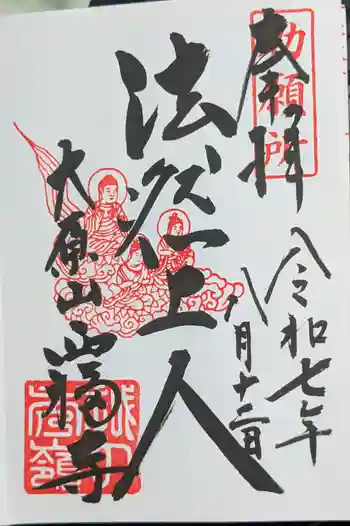 奉拝
勅願所
令和七年
八月十二日
法然上人
大原山
西福寺